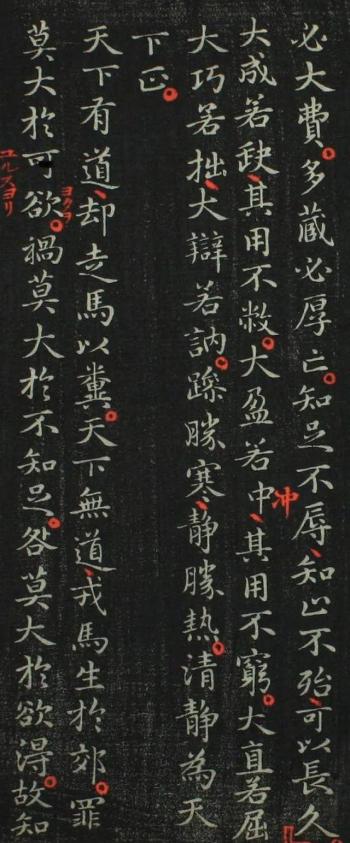 必大費。多藏必厚亡。知足不辱、知止不殆、可以長久
冲
大成若缺、其用不敝。大盈若中、其用不窮。大直若屈
大巧若拙、大辯若訥。躁勝寒、靜勝熱。清靜為天
下正。
天下有道、却走馬以糞。天下無道、戎馬生於郊。罪
ヨクヲ
莫大於可欲。禍莫大於不知足。咎莫大於欲得。故知
ユルスヨリ